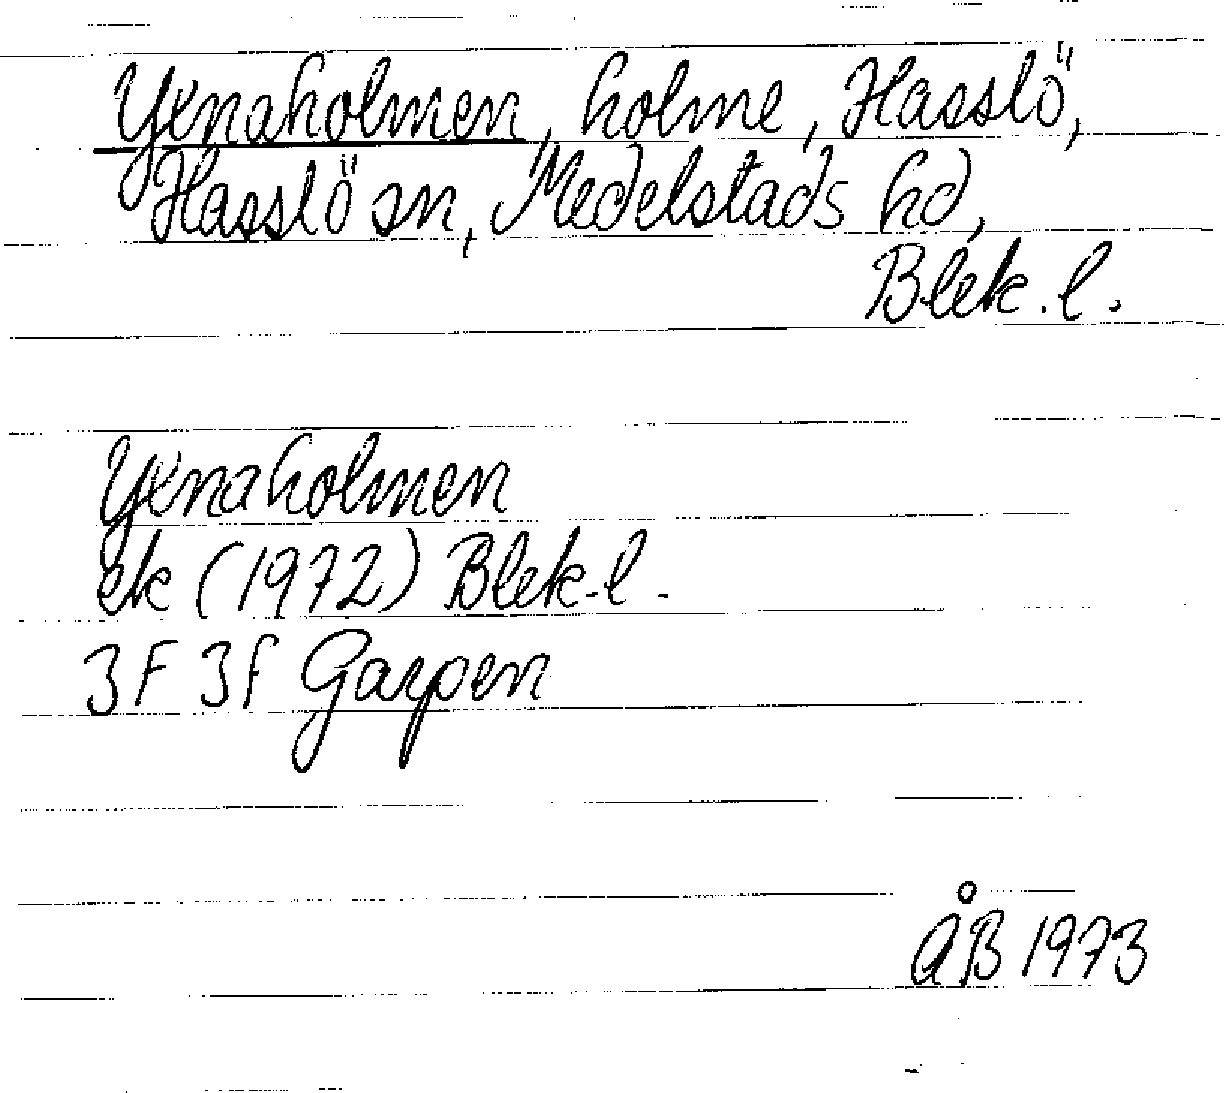 Yxnaholmen, holme, Hasslö,
Hasslö sn, Medelstads hd,
Blek. l.
Yxnaholmen
ek (1972) Blek. l.
3F 3f Garpen
ÅB 1973